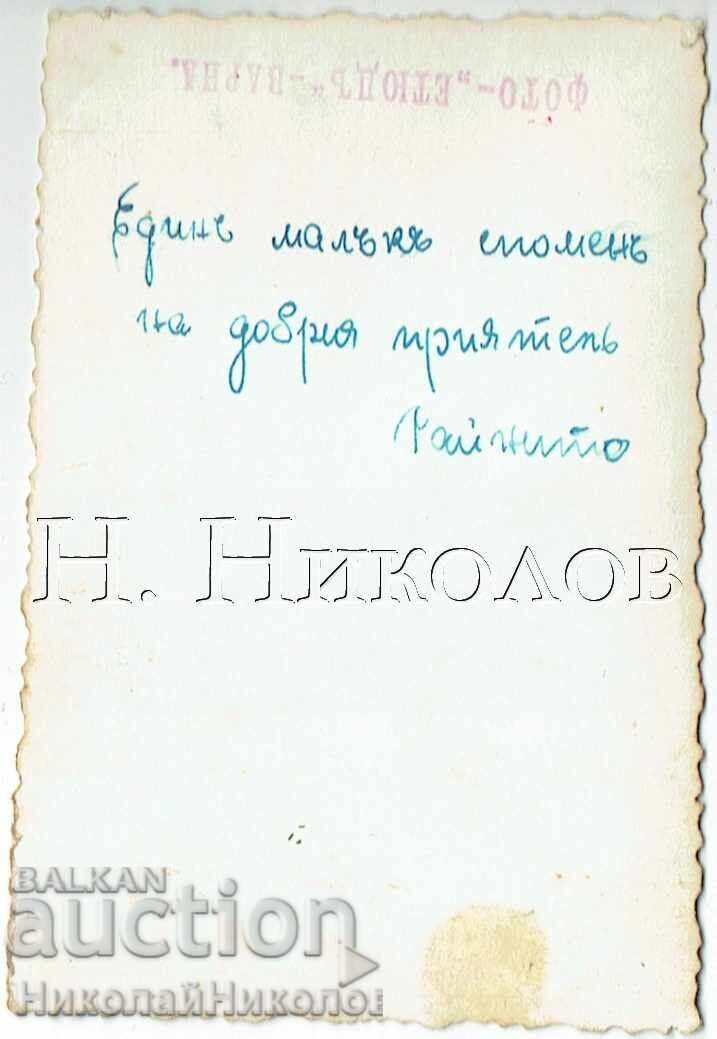 ФОТО-„ЕТЮДЪ“-ВАРНА.
Единъ малъкъ споменъ
на добрия приятель
Н. Николов
BALKAN
auction
НиколайНиколов